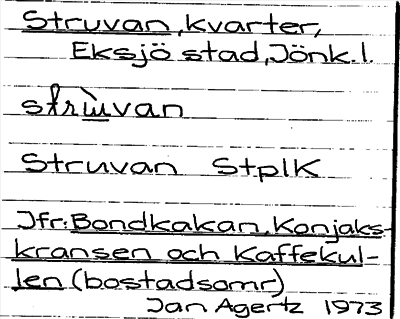 Struvan, kvarter,
Eksjö stad, Jönk. l.
strùvan
Struvan StplK
Jfr: Bondkakan, Konjaks-
kransen och Kaffekul-
len (bostadsomr)
Jan Agertz 1973